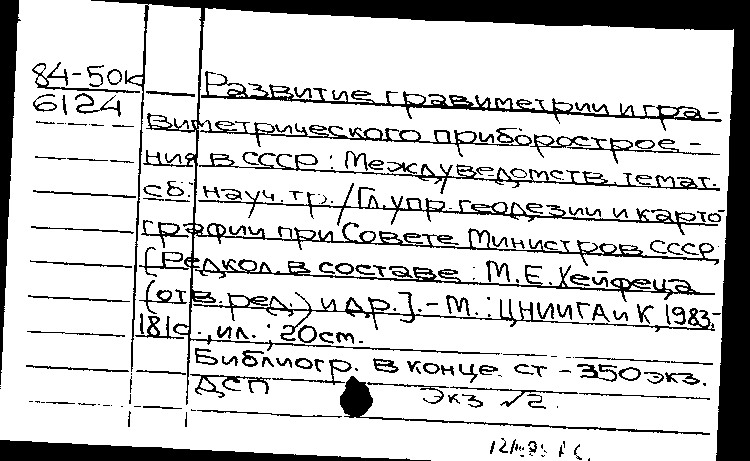 84-50к
6124
Развитие гравиметрии и гра-
виметрического приборострое-
ния в СССР : Междуведомств. темат.
сб. науч. тр. / Гл. упр. геодезии и карто
графии при Совете Министров СССР,
[Редкол. в составе : М.Е. Хейфеца
(отв. ред.) и др.]. - М. : ЦНИИГАиК, 1983.-
181с., ил. ; 20см.
Библиогр. в конце ст - 350экз.
ДСП Экз №2